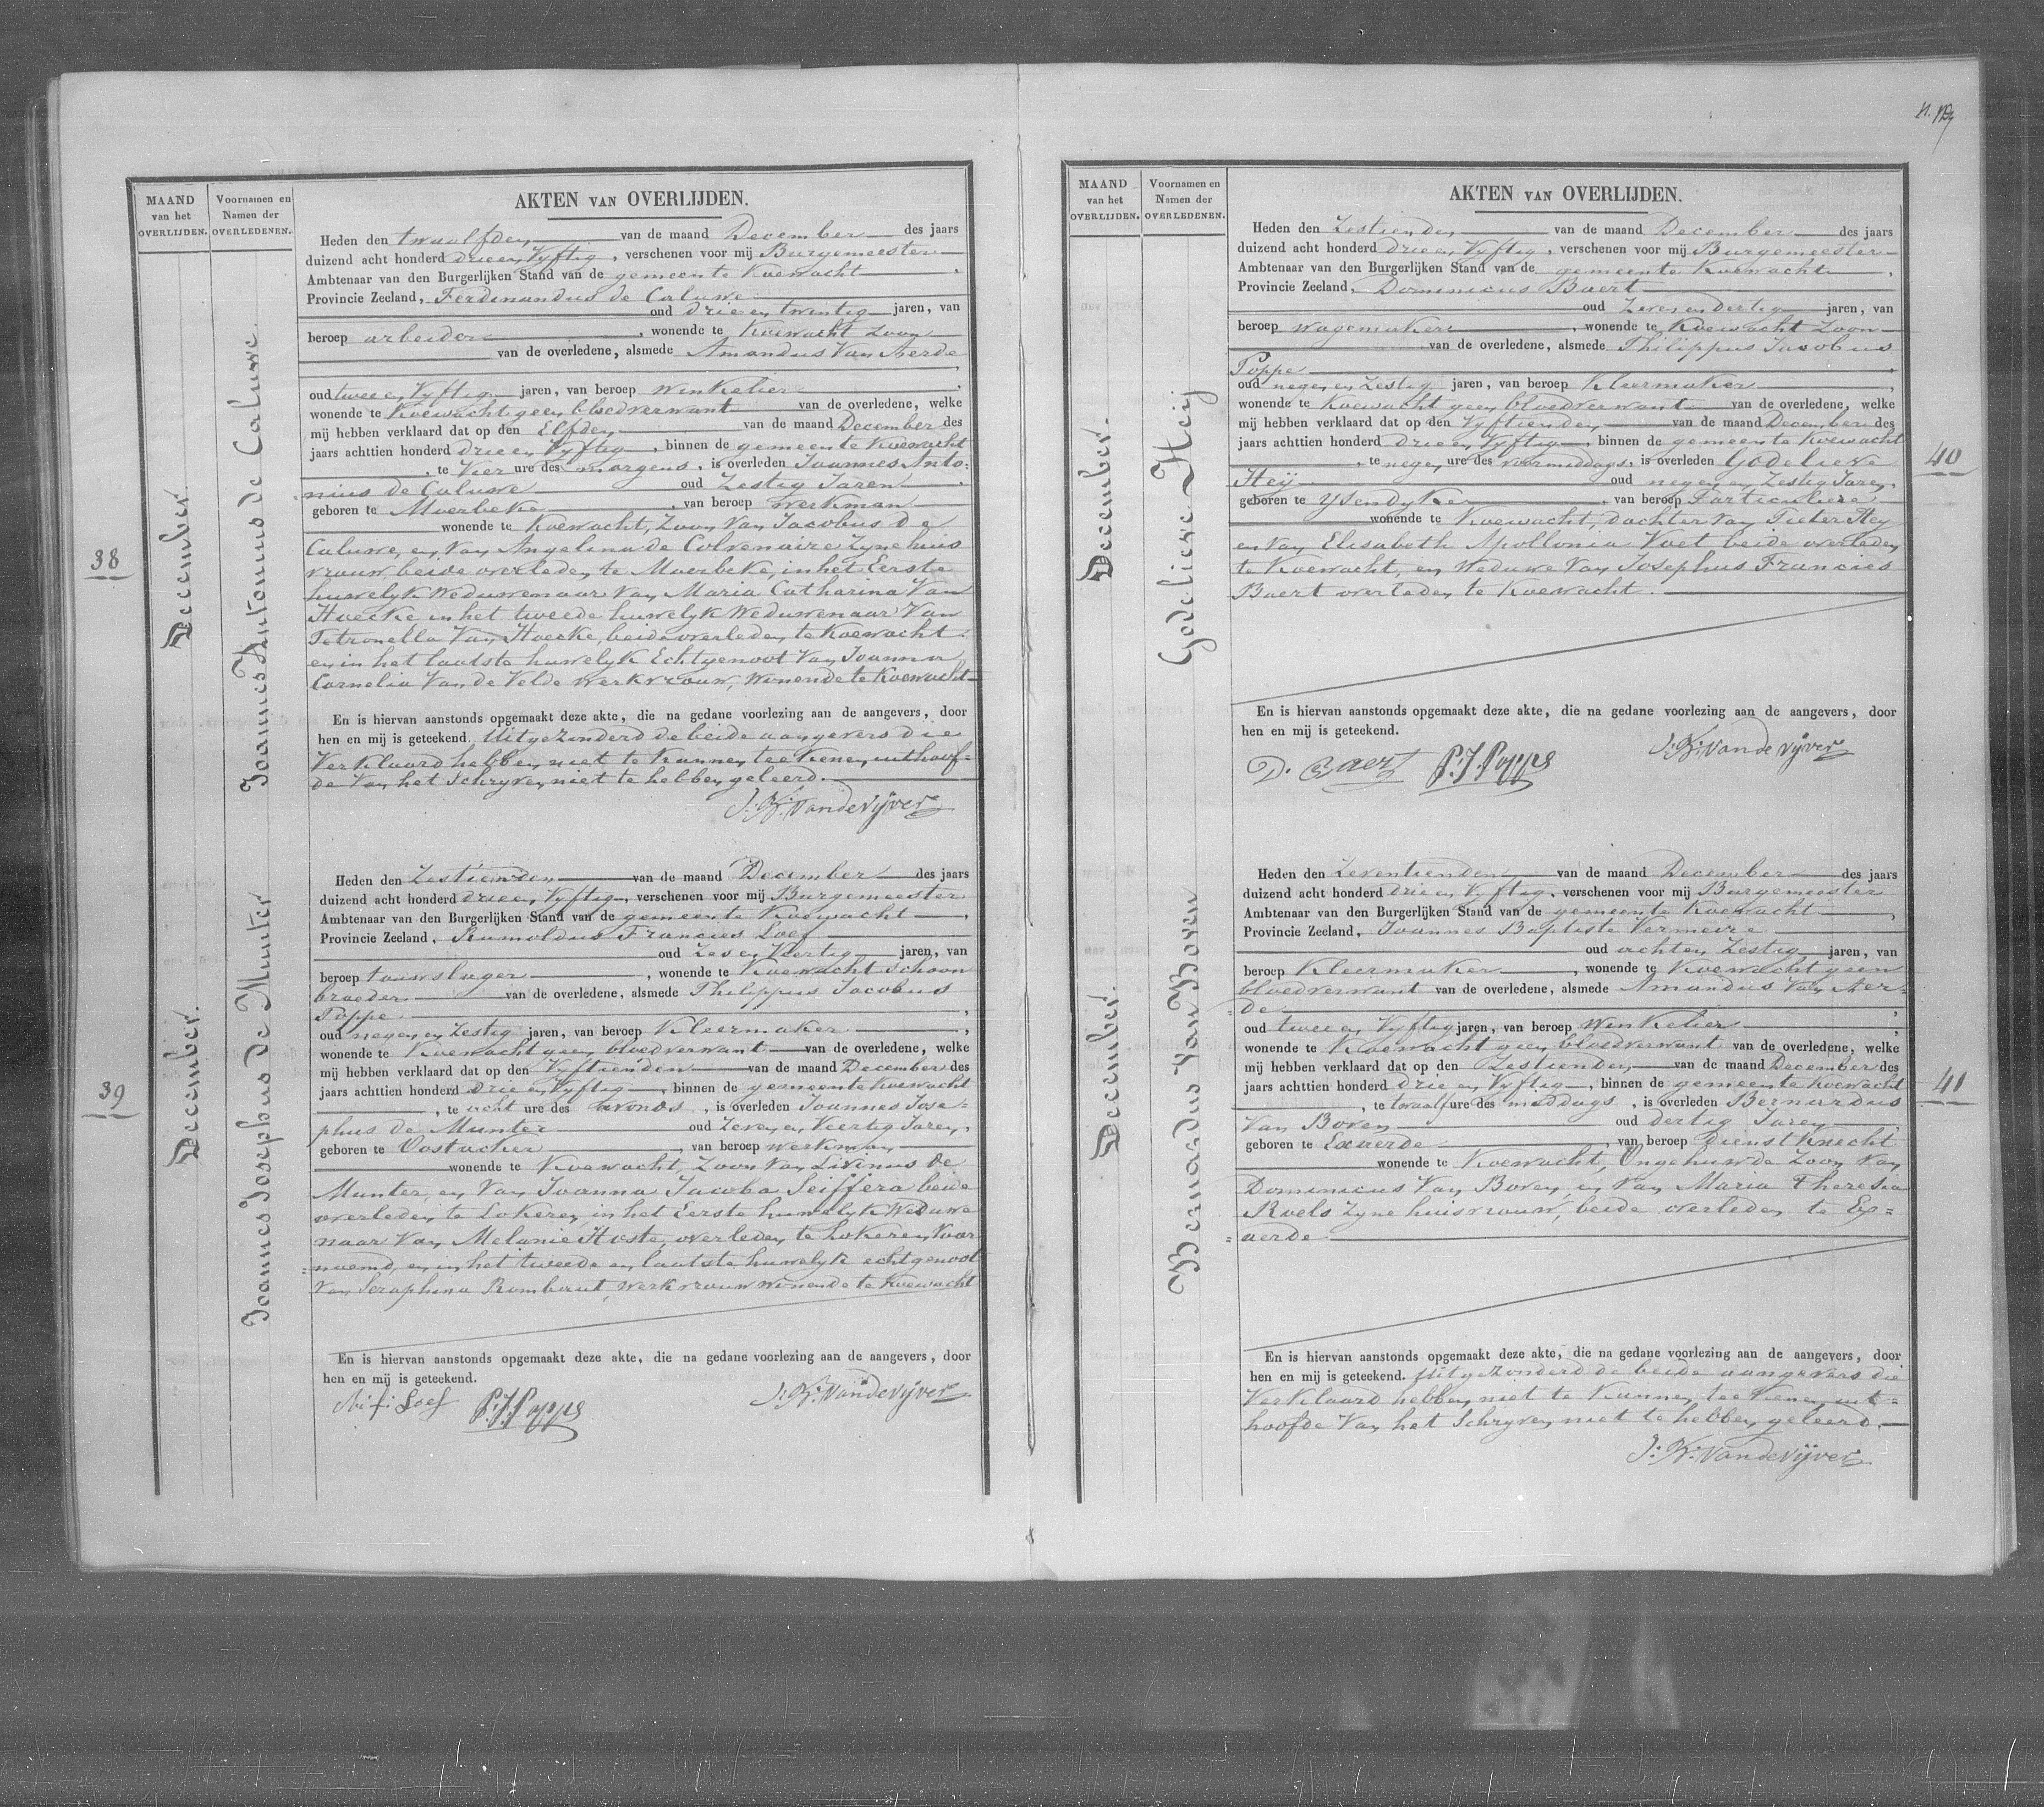 N. 19
MAAND
van het
OVERLIJDEN.
Voornamen en
Namen der
OVERLEDENEN.
AKTEN VAN OVERLIJDEN.
38
December.
Joannes Antonius de Caluwe.
Heden den twaalfden van de maand December des jaars
duizend acht honderd drie en Vyftig, verschenen voor mij Burgemeester
Ambtenaar van den Burgerlijken Stand van de gemeente Koewacht,
Provincie Zeeland, Ferdinandus de Caluwe
oud drie en twintig jaren, van
beroep arbeider, wonende te Koewacht Zoon
van de overledene, alsmede Amandus Van Aerde
oud twee en Vyftig jaren, van beroep Winkelier,
wonende te Koewacht geen bloedverwant van de overledene, welke
mij hebben verklaard dat op den Elfden van de maand December des
jaars achttien honderd drie en Vyftig, binnen de gemeente Koewacht
, te Vier ure des morgens, is overleden Joannes Anto-
nius de Caluwe oud Zestig Jaren,
geboren te Moerbeke, van beroep Werkman
wonende te Koewacht, Zoon Van Jacobus de
Caluwe, en Van Angelina de Colvenaire Zyne huis
vrouw, beide overleden te Moerbeke, in het Eerste
huwelyk Weduwenaar Van Maria Catharina Van
Hoecke in het tweede huwelyk Weduwenaar Van
Petronella Van Hoecke, beide overleden te Koewacht
en in het laatste huwelyk Echtgenoot Van Joanna
Cornelia Van de Velde werkvrouw, Wonende te Koewacht
En is hiervan aanstonds opgemaakt deze akte, die na gedane voorlezing aan de aangevers, door
hen en mij is geteekend. Uitgezonderd de beide aangevers die
Verklaard hebben niet te kunnen teekenen uithoof-
de Van het Schryven niet te hebben geleerd.
J: B: Van de Vijver
39
December.
Joannes Josephus de Munter
Heden den Zestienden van de maand December des jaars
duizend acht honderd drie en Vyftig, verschenen voor mij Burgemeester
Ambtenaar van den Burgerlijken Stand van de gemeente Koewacht,
Provincie Zeeland, Rumoldus Francies Loef
oud Zes en Veertig jaren, van
beroep touwslager, wonende te Koewacht Schoon
broeder van de overledene, alsmede Philippus Jacobus
Poppe,
oud negen en Zestig jaren, van beroep Kleermaker,
wonende te Koewacht geen bloedverwant van de overledene, welke
mij hebben verklaard dat op den Vyftienden van de maand December des
jaars achttien honderd drie en Vyftig, binnen de gemeente Koewacht
, te acht ure des avonds, is overleden Joannes Jose-
phus de Munter oud Zeven en Veertig Jaren,
geboren te Oostacker, van beroep Werkman
wonende te Koewacht, Zoon Van Livinus de
Munter, en Van Joanna Jacoba Seiffera beide
overleden te Lokeren, in het Eerste huwelyk Weduwe
naar Van Melanie Hoste, overleden te Lokeren Voor
=noemd, en in het tweede en laatste huwelyk echtgenoot
Van Seraphina Rombaut, werkvrouw wonende te Koewacht
En is hiervan aanstonds opgemaakt deze akte, die na gedane voorlezing aan de aangevers, door
hen en mij is geteekend.
Loef P:J:Poppe J: B: Van de Vijver
MAAND
van het
OVERLIJDEN.
Voornamen en
Namen der
OVERLEDENEN.
AKTEN VAN OVERLIJDEN.
December.
Godelieve Heij
40
Heden den Zestienden van de maand December des jaars
duizend acht honderd Drie en Vyftig, verschenen voor mij Burgemeester
Ambtenaar van den Burgerlijken Stand van de gemeente Koewacht,
Provincie Zeeland, Dominicus Baert
oud Zeven en dertig jaren, van
beroep wagemaker, wonende te Koewacht Zoon
van de overledene, alsmede Philippus Jacobus
Poppe,
oud negen en Zestig jaren, van beroep Kleermaker,
wonende te Koewacht geen bloedverwant van de overledene, welke
mij hebben verklaard dat op den Vyftienden van de maand December des
jaars achttien honderd drie en Vyftig, binnen de gemeente Koewacht
, te negen ure des voormiddags, is overleden Godelieve
Heij oud negen en Zestig Jaren,
geboren te Ysendyke, van beroep Particuliere
wonende te Koewacht, dochter Van Pieter Hey
en Van Elisabeth Apollonia Voet beide overleden
te Koewacht, en Weduwe Van Josephus Francies
Baert overleden te Koewacht.
En is hiervan aanstonds opgemaakt deze akte, die na gedane voorlezing aan de aangevers, door
hen en mij is geteekend.
D. Baert P:J:Poppe J: B: Van de Vijver
December.
Bernardus Van Boven
41
Heden den Zeventienden van de maand December des jaars
duizend acht honderd drie en Vyftig, verschenen voor mij Burgemeester
Ambtenaar van den Burgerlijken Stand van de gemeente Koewacht,
Provincie Zeeland, Joannes Baptiste Vermeire
oud acht en Zestig jaren, van
beroep Kleermaker, wonende te Koewacht geen
bloedverwant van de overledene, alsmede Amandus Van Aer=
=de,
oud twee en Vyftig jaren, van beroep Winkelier,
wonende te Koewacht geen bloedverwant van de overledene, welke
mij hebben verklaard dat op den Zestienden van de maand December des
jaars achttien honderd drie en Vyftig, binnen de gemeente Koewacht
, te twaalf ure des middags, is overleden Bernardus
Van Boven oud dertig Jaren,
geboren te Exaerde, van beroep Dienstknecht
wonende te Koewacht, Ongehuwde Zoon Van
Dominicus Van Boven, en Van Maria Theresia
Roels Zyne huisvrouw, beide overleden te Ex=
=aerde
En is hiervan aanstonds opgemaakt deze akte, die na gedane voorlezing aan de aangevers, door
hen en mij is geteekend. Uitgezonderd de beide aangevers die
Verklaard hebben niet te kunnen teekenen uit=
hoofde Van het Schryven niet te hebben geleerd.
J: B: Van de Vijver